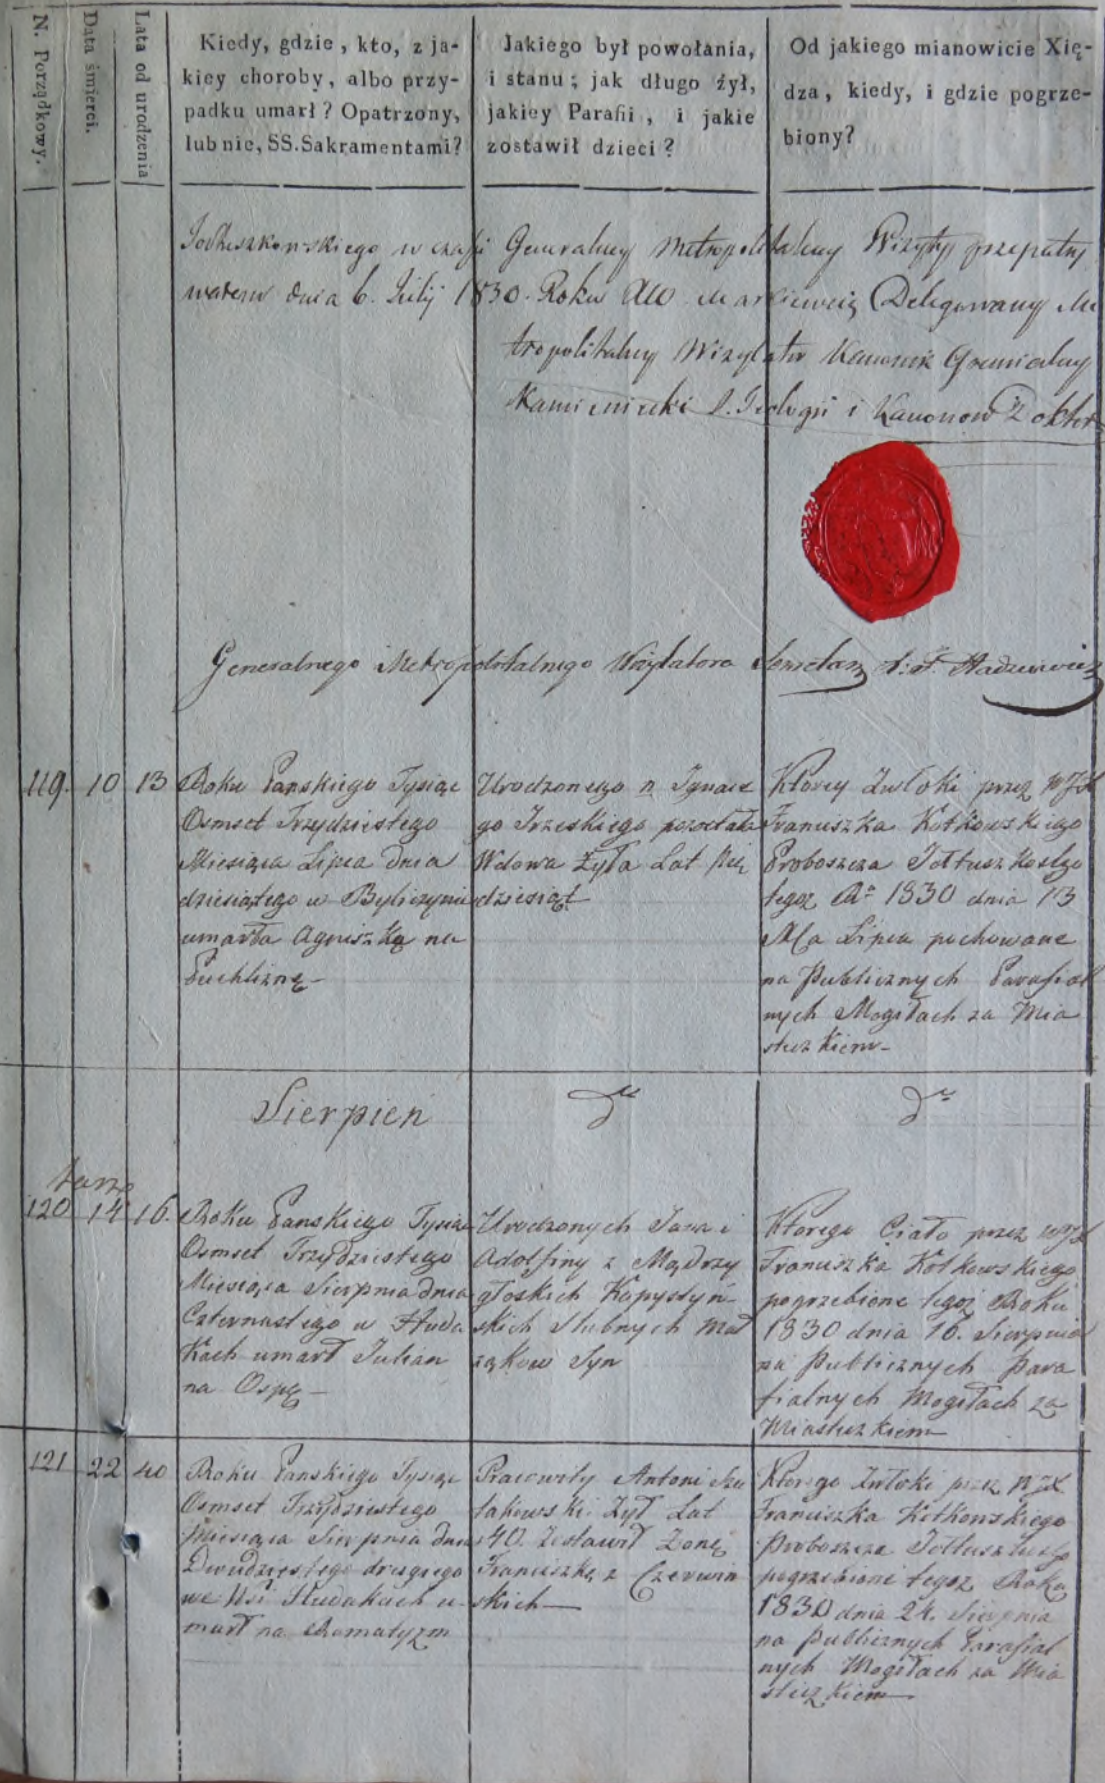 N. Porządkowy.
Data śmierci.
Lata od urodzenia
Kiedy, gdzie, kto, z ja-
kiey choroby, albo przy-
padku umarł? Opatrzony,
lub nie, SS. Sakramentami?
Jakiego był powołania,
i stanu; jak długo żył,
jakiey Parafii, i jakie
zostawił dzieci?
Od jakiego mianowicie Xię-
dza, kiedy, i gdzie pogrze-
biony?
w czasie Generalney Metropolitalney Wizyty przepatry
wałem dnia 6. Julij 1830. Roku Delegowany Me
tropolitalny Wizytator Kanonik Gremialny
Kamieniecki S. Teologii i Kanonow Doktor
Generalnego Metropolitalnego Wizytatora Sekretarz
119. 10 13
Roku Panskiego Tysiąc
Osmset Trzydziestego
Miesiąca Lipca dnia
dziesiątego w
umarła Agniszka na
Puchlinę
Urodzonego n Ignace
go Trzeskiego pozostała
Wdowa Żyła Lat Pię
dziesiąt
Ktorey Zwłoki przez WJX
Franciszka Kotkowskiego
Proboszcza
tegoż Ao 1830 dnia 13
Mca Lipca pochowane
na Publicznych Parafial
nych Mogiłach za Mia
steczkiem
Sierpień
do
do
120 14 16.
Roku Panskiego Tysiąc
Osmset Trzydziestego
Miesiąca Sierpnia dnia
Czternastego w Huda
kach umarł Julian
na Ospę
Urodzonych Jana i
Adolfiny z Mądrzy
głoskich Kopystyń-
skich Slubnych Mał
żąkow Syn
Ktorego Ciało przez WJX
Franciszka Kotkowskiego
pogrzebione tegoż Roku
1830 dnia 16. Sierpnia
na Publicznych Para
fialnych Mogiłach za
Miasteczkiem
121 22 40
Roku Panskiego Tysiąc
Osmset Trzydziestego
Miesiąca Sierpnia dnia
Dwudziestego drugiego
we Wsi Hudakach u-
marł na Romatyzm
Pracowity Antoni
Żył Lat
40. Zostawił Żonę
Franciszkę z Czerwin
skich
Ktorego Zwłoki przez WJX
Franciszka Kotkowskiego
Proboszcza
pogrzebione tegoż Roku
1830 dnia 24. Sierpnia
na Publicznych Parafial
nych Mogiłach za Mia
steczkiem